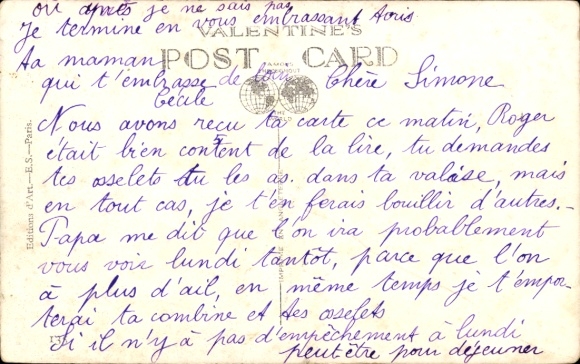 où après je ne sais pas
Je termine en vous embrassant tous
VALENTINE'S
POST CARD
FAMOUS
ta maman
qui t'embrasse de loin
Cécile
Chère Simone
Nous avons reçu ta carte ce matin, Roger
était bien content de la lire, tu demandes
tes osselets tu les as dans ta valise, mais
en tout cas, je t'en ferais bouillir d'autres.-
Papa me dit que l'on ira probablement
vous voir lundi tantôt, parce que l'on
à plus d'ail, en même temps je t'empor-
terai ta combine et tes osselets
Si il n'y à pas d'empêchement à lundi
peut être pour déjeuner
Editions d'Art.—E.S.—Paris.